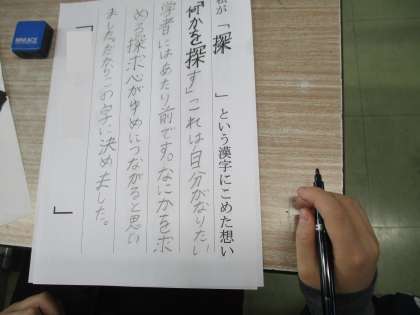 私が「探　　」という漢字にこめた想い
「何かを探す」これは自分がなりたい
学者にはあたり前です。なにかを求
める探求心がゆめにつながると思い
ました。だからこの字に決めました。」